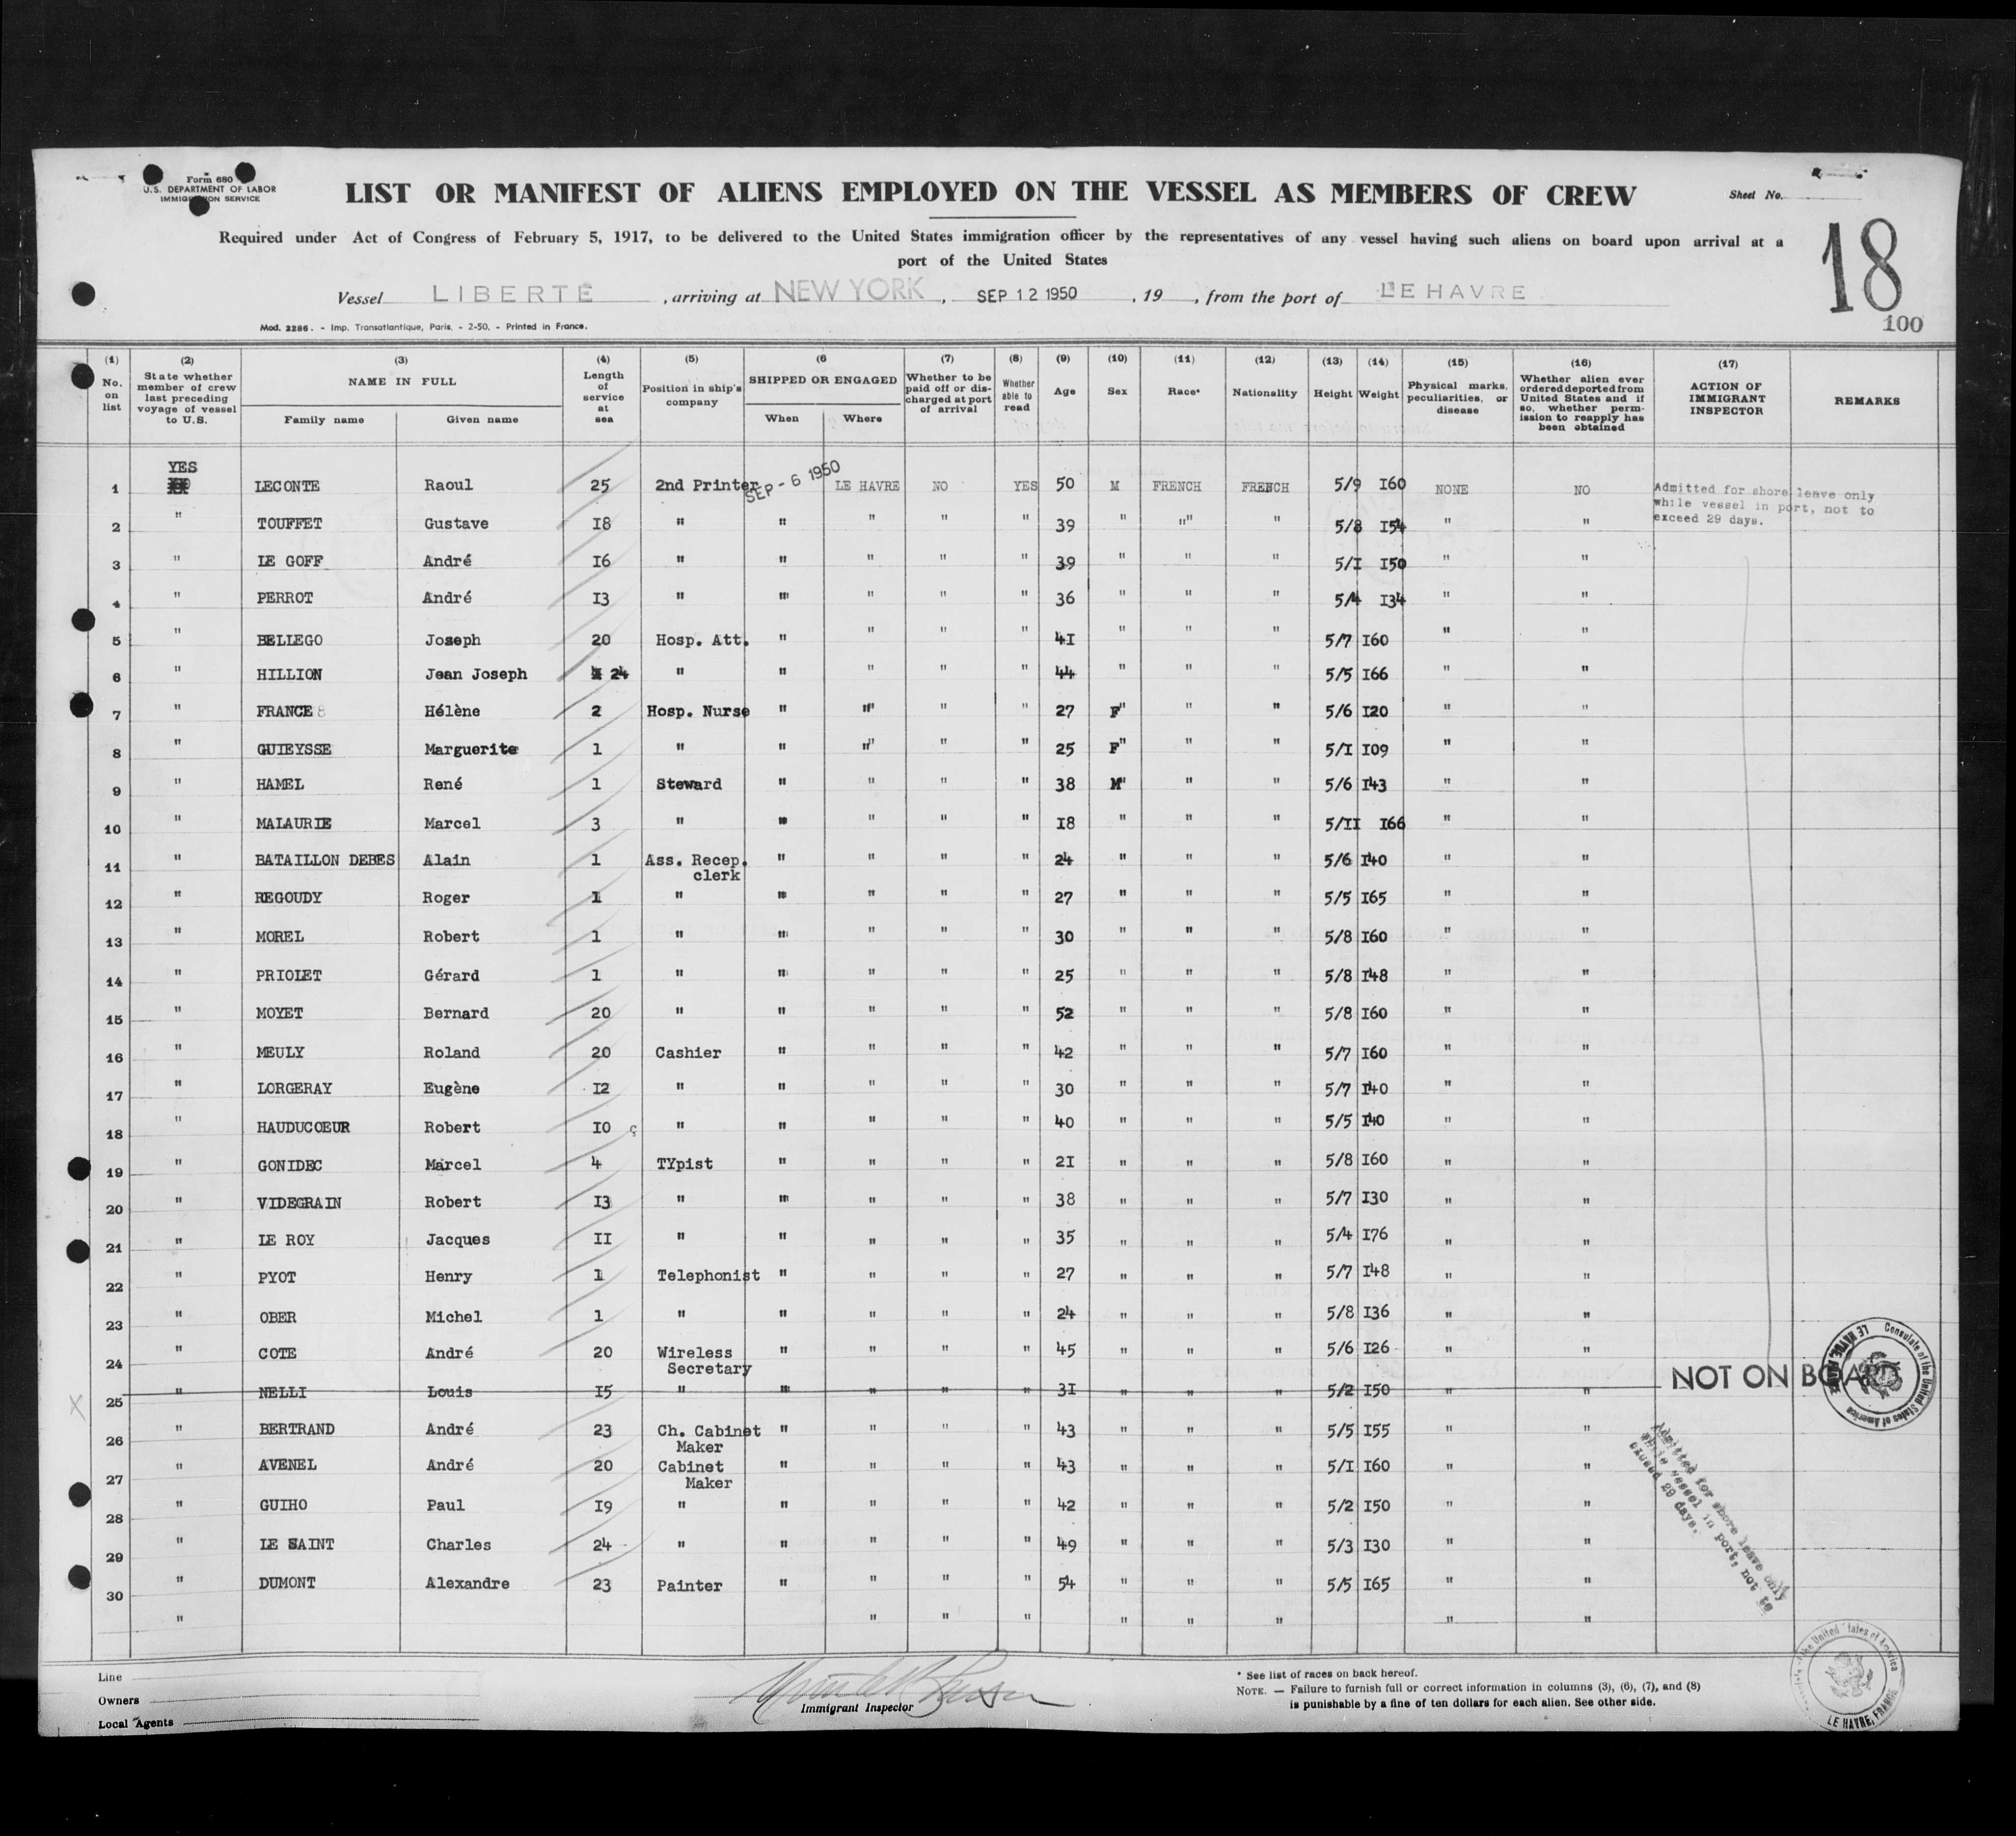 Form 680
U.S. DEPARTMENT OF LABOR
IMMIGRATION SERVICE
LIST OR MANIFEST OF ALIENS EMPLOYED ON THE VESSEL AS MEMBERS OF CREW
Sheet No.
18
100
Required under Act of Congress of February 5, 1917, to be delivered to the United States immigration officer by the representatives of any vessel having such aliens on board upon arrival at a
port of the United States
Vessel LIBERTÉ , arriving at NEW YORK , SEP 12 1950 , 19 , from the port of LE HAVRE
Mod. 2286. - Imp. Transatlantique, Paris. - 2-50. - Printed in France.
(1) (2) (3) (4) (5) (6 (7) (8) (9) (10) (11) (12) (13) (14) (15) (16) (17)
No. on list State whether member of crew last preceding voyage of vessel to U.S. NAME IN FULL Family name Given name Length of service at sea Position in ship's company SHIPPED OR ENGAGED When Where Whether to be paid off or discharged at port of arrival Whether able to read Age Sex Race* Nationality Height Weight Physical marks, peculiarities, or disease Whether alien ever ordered deported from United States and if so, whether permission to reapply has been obtained ACTION OF IMMIGRANT INSPECTOR REMARKS
1 YES LECONTE Raoul 25 2nd Printer SEP - 6 1950 LE HAVRE NO YES 50 M FRENCH FRENCH 5/9 160 NONE NO Admitted for shore leave only while vessel in port, not to exceed 29 days.
2 " TOUFFET Gustave 18 " " " " " 39 " "" " 5/8 154 " "
3 " LE GOFF André 16 " " " " " 39 " " " 5/1 150 " "
4 " PERROT André 13 " " " " " 36 " " " 5/4 134 " "
5 " BELLEGO Joseph 20 Hosp. Att. " " " " 41 " " " 5/7 160 " "
6 " HILLION Jean Joseph 24 " " " " " 44 " " " 5/5 166 " "
7 " FRANCE Hélène 2 Hosp. Nurse " " " " 27 F" " " 5/6 120 " "
8 " GUIEYSSE Marguerite 1 " " " " " 25 F" " " 5/1 109 " "
9 " HAMEL René 1 Steward " " " " 38 M" " " 5/6 143 " "
10 " MALAURIE Marcel 3 " " " " " 18 " " " 5/11 166 " "
11 " BATAILLON DEBES Alain 1 Ass. Recep. clerk " " " " 24 " " " 5/6 140 " "
12 " REGOUDY Roger 1 " " " " " 27 " " " 5/5 165 " "
13 " MOREL Robert 1 " " " " " 30 " " " 5/8 160 " "
14 " PRIOLET Gérard 1 " " " " " 25 " " " 5/8 148 " "
15 " MOYET Bernard 20 " " " " " 52 " " " 5/8 160 " "
16 " MEULY Roland 20 Cashier " " " " 42 " " " 5/7 160 " "
17 " LORGERAY Eugène 12 " " " " " 30 " " " 5/7 140 " "
18 " HAUDUCOEUR Robert 10 ç " " " " " 40 " " " 5/5 140 " "
19 " GONIDEC Marcel 4 TYpist " " " " 21 " " " 5/8 160 " "
20 " VIDEGRAIN Robert 13 " " " " " 38 " " " 5/7 130 " "
21 " LE ROY Jacques 11 " " " " " 35 " " " 5/4 176 " "
22 " PYOT Henry 1 Telephonist " " " " 27 " " " 5/7 148 " "
23 " OBER Michel 1 " " " " " 24 " " " 5/8 136 " "
24 " COTE André 20 Wireless Secretary " " " " 45 " " " 5/6 126 " "
X 25 " NELLI Louis 15 " " " " " 31 " " " 5/2 150 " " NOT ON BOARD
26 " BERTRAND André 23 Ch. Cabinet Maker " " " " 43 " " " 5/5 155 " "
27 " AVENEL André 20 Cabinet Maker " " " " 43 " " " 5/1 160 " "
28 " GUIHO Paul 19 " " " " " 42 " " " 5/2 150 " "
29 " LE SAINT Charles 24 " " " " " 49 " " " 5/3 130 " "
30 " DUMONT Alexandre 23 Painter " " " " 54 " " " 5/5 165 " "
" " " " " " " " "
Consulate of the United States of America LE HAVRE, FRANCE
Admitted for shore leave only
while vessel in port, not to
exceed 29 days.
Line
Owners
Local Agents
Immigrant Inspector
* See list of races on back hereof.
NOTE. — Failure to furnish full or correct information in columns (3), (6), (7), and (8)
is punishable by a fine of ten dollars for each alien. See other side.
the United States of America
LE HAVRE, FRANCE